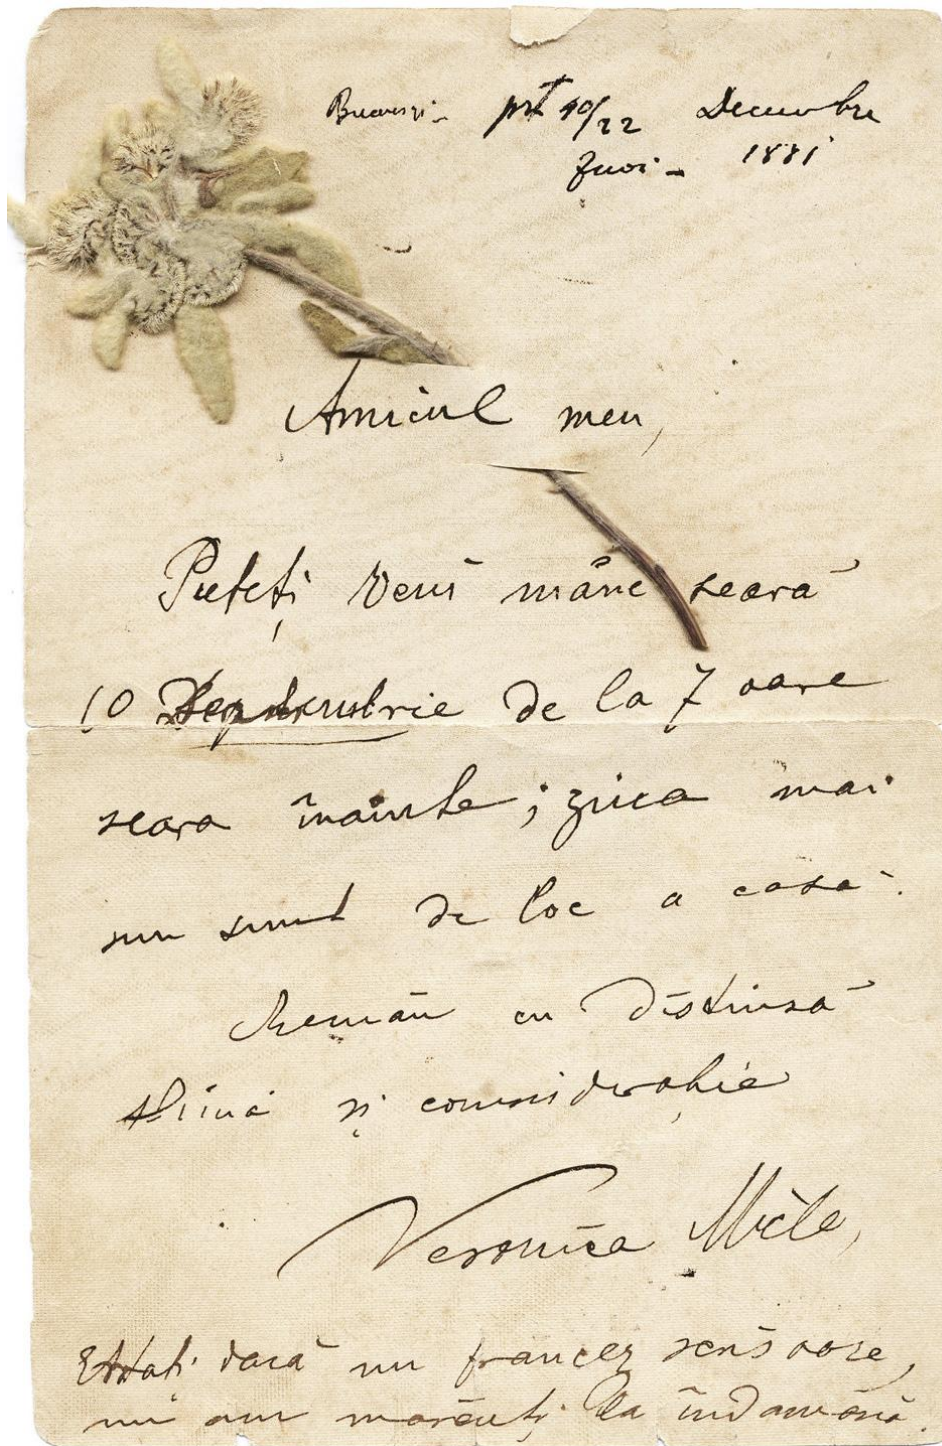 București - 10/22 Decembre
Juoi - 1881
Amicul meu,
Puteți veni mâne seară
10 de la 7 oare
seara înainte; ziua mai
nu sunt de loc a casă.
Remân cu distinsă
stimă și consideratie
Veronica Micle,
dacă nu francez scris oare,
nu am la îndamână.